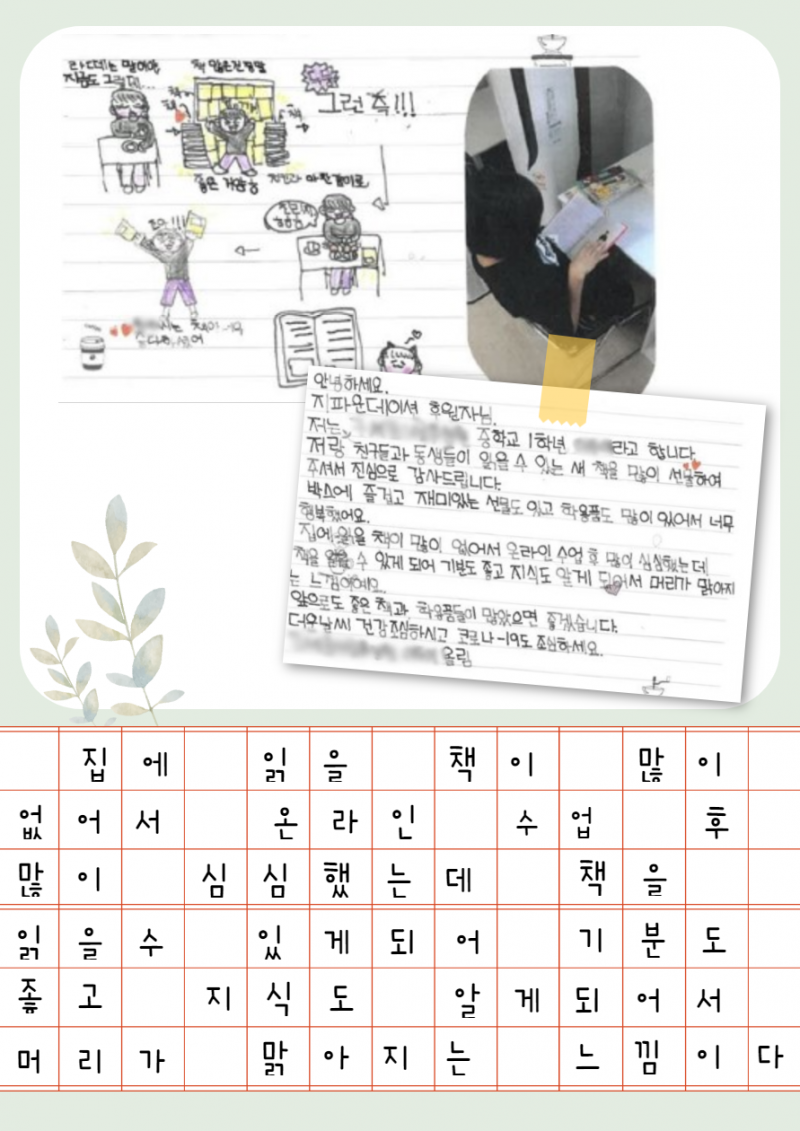 책 많은 진정말
그런 즉!!!
좋은 거양흥
안녕하세요.
지파운데이션 후원자님.
저는 중학교 1학년 라고 합니다
저랑 친구들과 동생들이 읽을 수 있는 새 책을 많이 선물하여
주셔서 진심으로 감사드립니다.
박스에 즐겁고 재미있는 선물도 있고 학용품도 많이 있어서 너무
행복했어요.
집에 읽을 책이 많이 없어서 온라인 수업 후 많이 심심했는데
책을 읽을 수 있게 되어 기분도 좋고 지식도 알게 되어서 머리가 맑아지
는 느낌이에요.
앞으로도 좋은 책과 학용품들이 많았으면 좋겠습니다.
더운날씨 건강조심하시고 코로나-19도 조심하세요.
올림
집에 읽을 책이 많이
없어서 온라인 수업 후
많이 심심했는데 책을
읽을수 있게되어 기분도
좋고 지식도 알게되어서
머리가 맑아지는 느낌이다